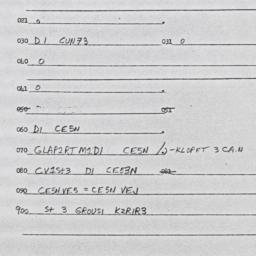 021 0
030 DI CUN73 031 0
040 0
041 0
050 051
060 DI CE5N
070 GLAP2RT M1DI CE5N -KLOFFT 3 CA.N
080 CV1St3 DI CE53N 081
090 CESNVES = CESN VEJ
900 St 3 GROUSI KZRIR3